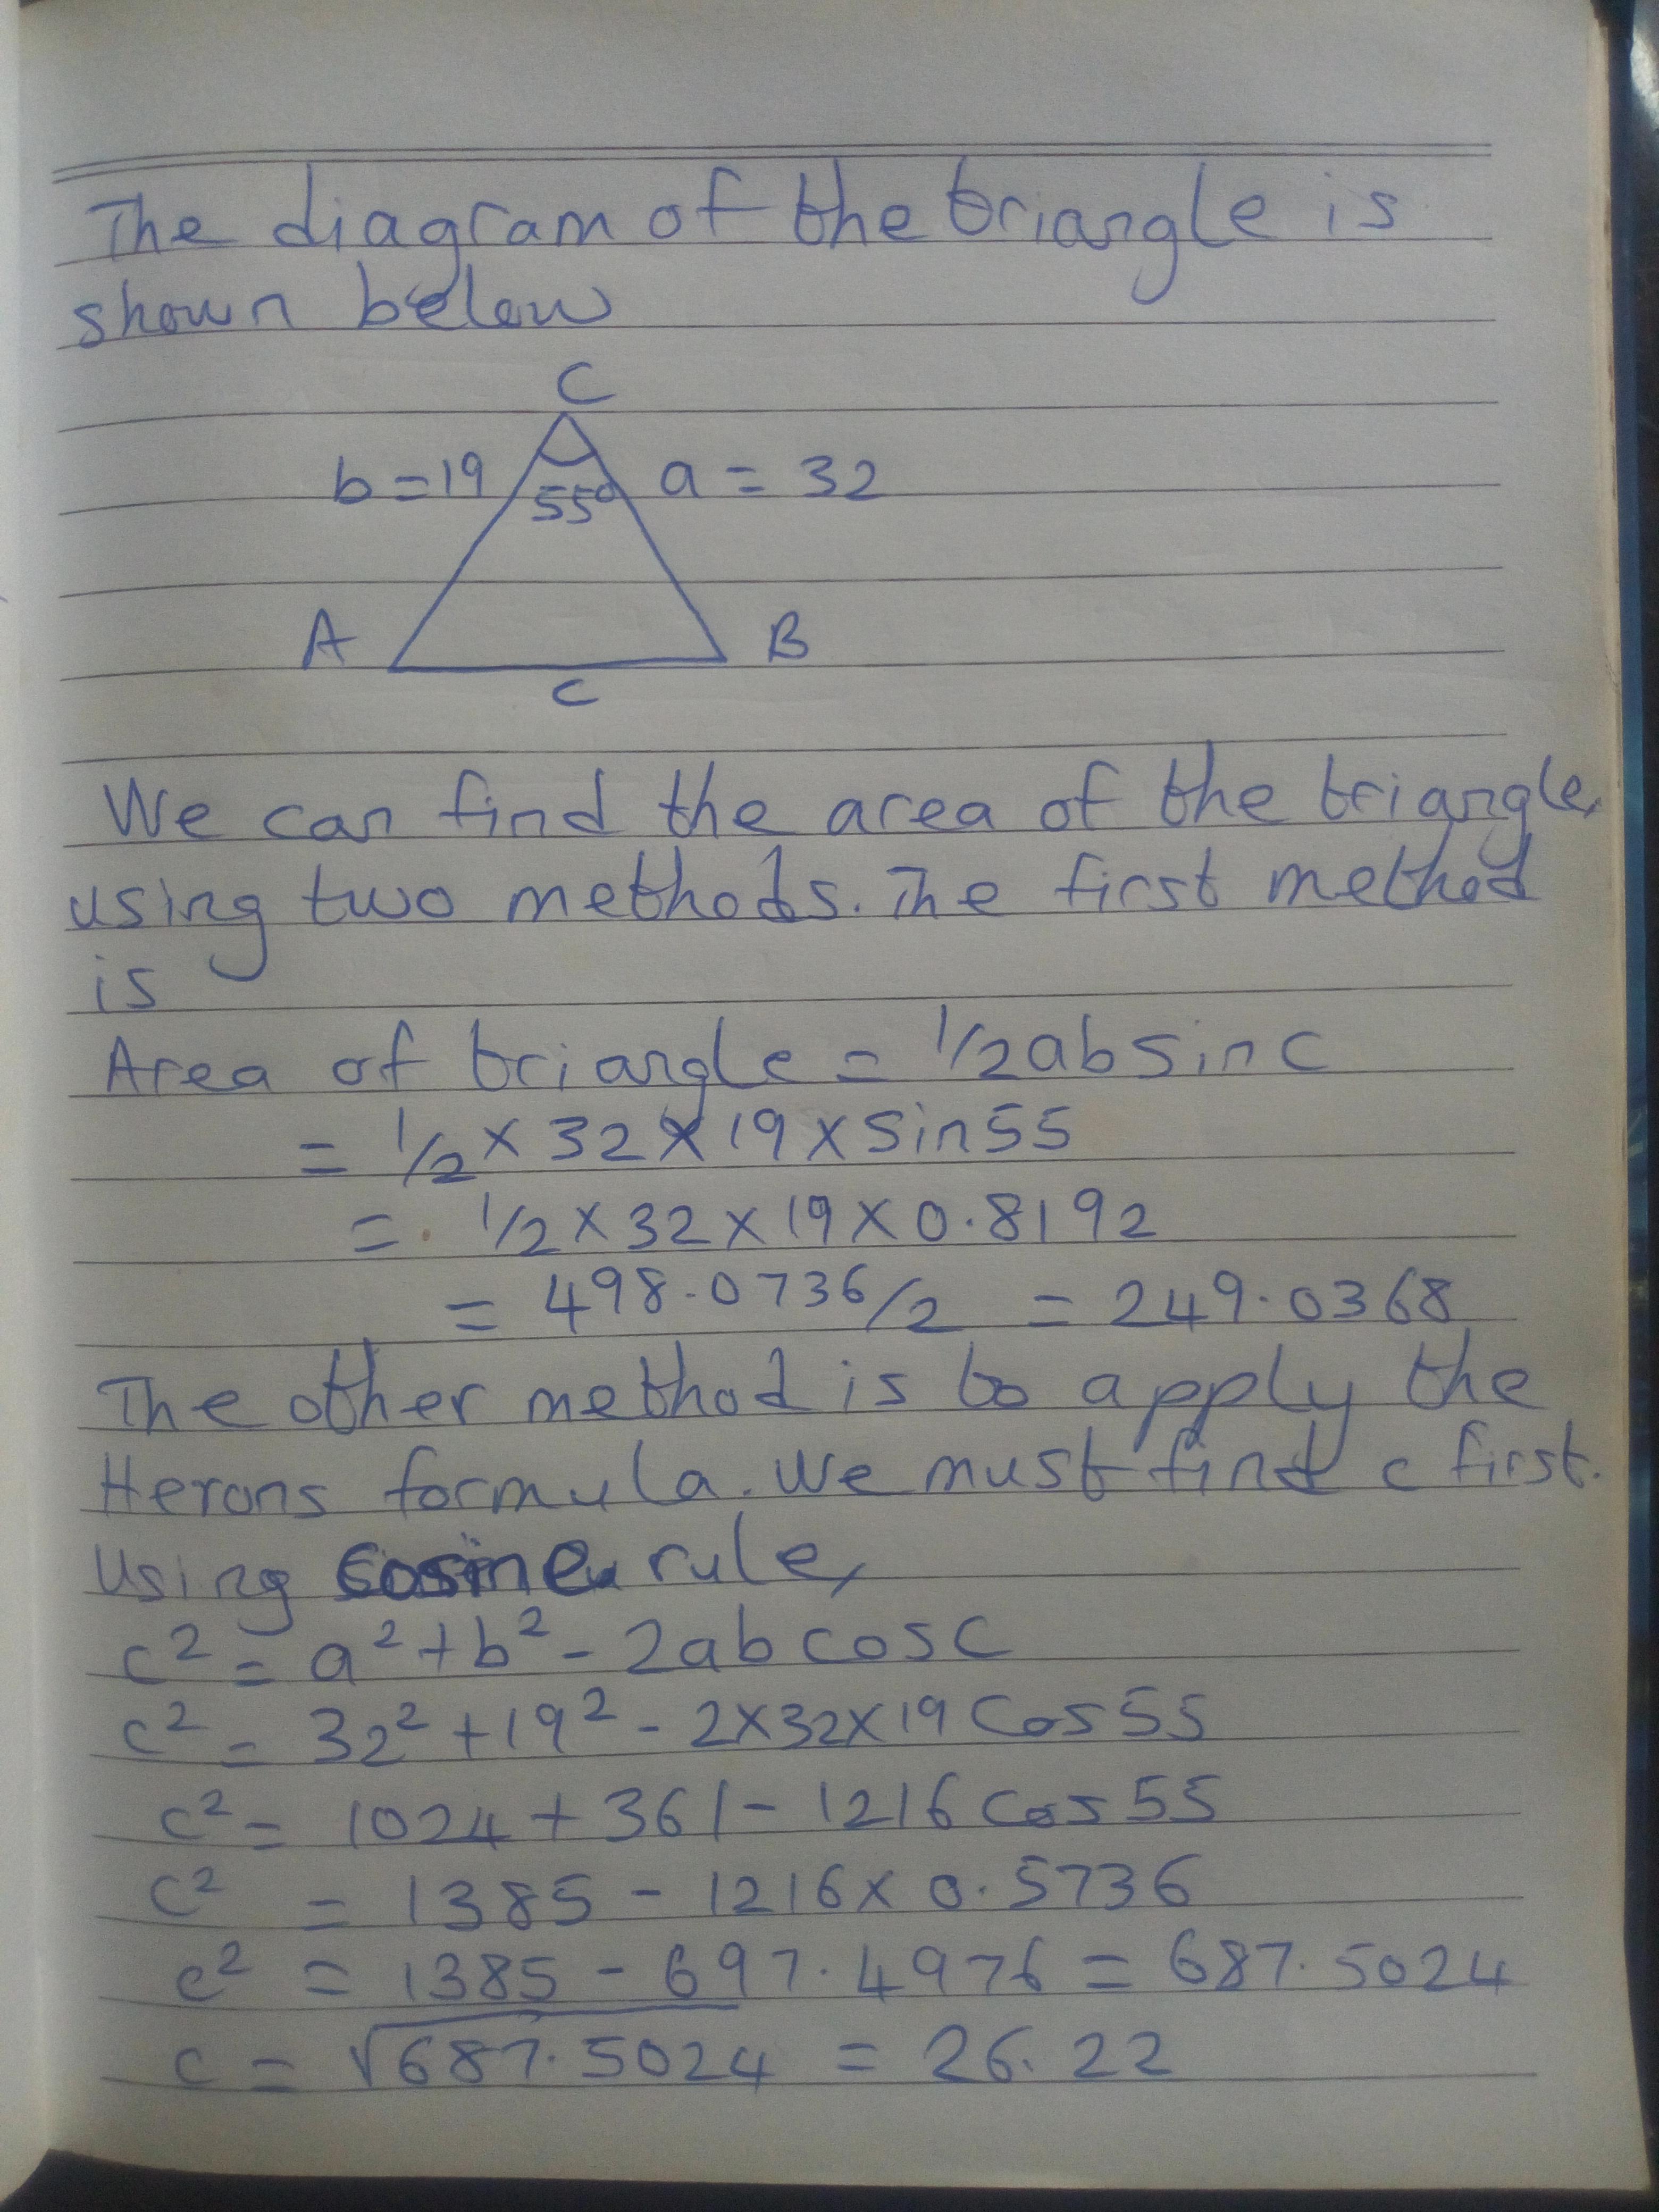 The diagram of the triangle is
shown below
C
b = 19
55°
a = 32
A
B
c
We can find the area of the triangle,
using two methods. The first method
is
Area of triangle = 1/2absinC
= 1/2 × 32 × 19 × sin55
= 1/2 × 32 × 19 × 0.8192
= 498.0736/2 = 249.0368
The other method is to apply the
Herons formula. We must find c first.
Using cosine rule,
c² = a² + b² - 2abcosC
c² = 32² + 19² - 2×32×19 Cos55
c² = 1024 + 361 - 1216 Cos55
c² = 1385 - 1216 × 0.5736
c² = 1385 - 697.4976 = 687.5024
c = √687.5024 = 26.22